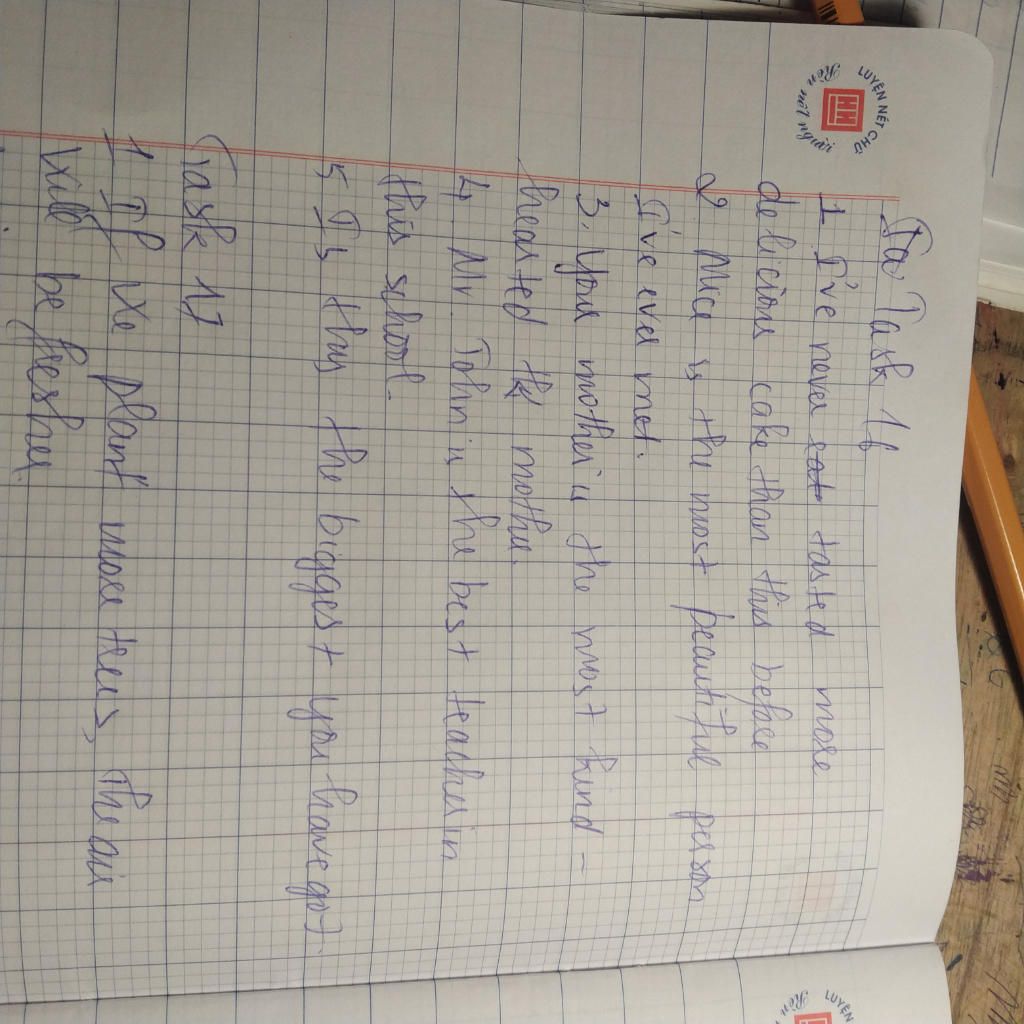 LUYỆN NẾT CHỮ
Rèn nết người
HH
Task 16
1 I've never eat tasted more
delicious cake than this before
2 Mice is the most beautiful person
I've ever met.
3. you mother is the most kind -
hearted mother.
4, Mr. John is the best teacher in
this school.
5 Is this the biggest you have got.
Task 17
1 If we plant more trees, The air
will be fresher.
LUYỆN
Rèn